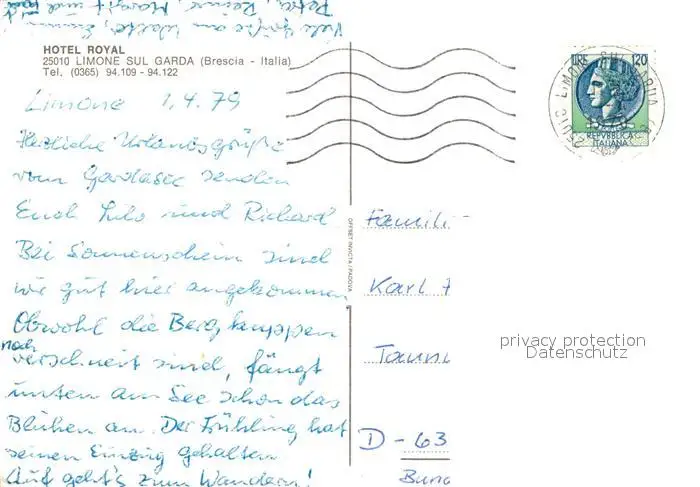 Viele Grüße an Walter,
Petra, Rainer, Margit und
HOTEL ROYAL
25010 LIMONE SUL GARDA (Brescia - Italia)
Tel. (0365) 94.109 - 94.122
Limone 1.4.79
Herzliche Urlaubsgrüße
vom Gardasee senden
Euch Lilo und Richard
Bei Sonnenschein sind
wir gut hier angekommen
Obwohl die Bergkuppen
noch
verschneit sind, fängt
unten am See schon das
Blühen an. Der Frühling hat
seinen Einzug gehalten
Auf geht's zum Wandern!
OFFSET INVICTA-PADOVA
LIRE 120
REPVBBLICA
ITALIANA
LIMONE SUL GARDA
Famili
Karl
Taunu
D - 63
Bund
privacy protection
Datenschutz